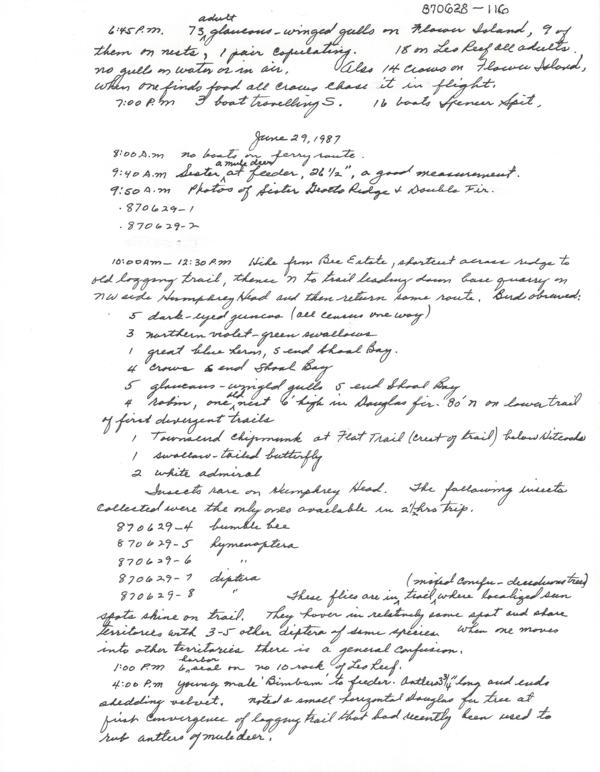 870628-116
6:45 P.M. 73 adult glaucous-winged gulls on Flower Island, 9 of
them on nests, 1 pair copulating. 18 on Leo Reef all adults.
no gulls on water or in air. Also 14 crows on Flower Island,
when one finds food all crows chase it in flight.
7:00 P.M 3 boat travelling S. 16 boats Spencer Spit.
June 29, 1987
8:00 A.M no boats on ferry route.
9:40 A.M Sister, a mule deer at feeder, 26 1/2", a good measurement.
9:50 A.M Photos of Sister Grotto Ridge + Double Fir.
.870629-1
.870629-2
10:00 AM - 12:30 P.M Hike from Bee Estate, shortcut across ridge to
old logging trail, thence N to trail leading down base quarry on
NW side Humphrey Head and then return same route. Bird observed:
5 dark-eyed juncos (all census one way)
3 northern violet-green swallows
1 great blue heron, S end Shoal Bay.
4 crows S end Shoal Bay
5 glaucous-winged gulls S end Shoal Bay
4 robin, one old nest 6' high in Douglas fir. 80' N on lower trail
of first divergent trails
1 Townsend Chipmunk at Flat Trail (crest of trail) below
1 swallow-tailed butterfly
2 white admiral
Insects rare on Humphrey Head. The following insects
collected were the only ones available in 2 1/2 hrs trip.
870629-4 bumble bee
870629-5 hymenoptera
870629-6 "
870629-7 diptera
870629-8 " These flies are in (mixed conifer-deciduous trees) trail, where localized sun
spots shine on trail. They hover in relatively same spot and share
territories with 3-5 other diptera of same species. When one moves
into other territories there is a general confusion.
1:00 P.M 6 harbor seal on no 10 rock of Leo Reef.
4:00 P.m young male 'Bimbam' to feeder. Antlers 3 3/4" long and ends
shedding velvet. noted a small horizontal Douglas fir tree at
first convergence of logging trail that had recently been used to
rub antlers of mule deer.